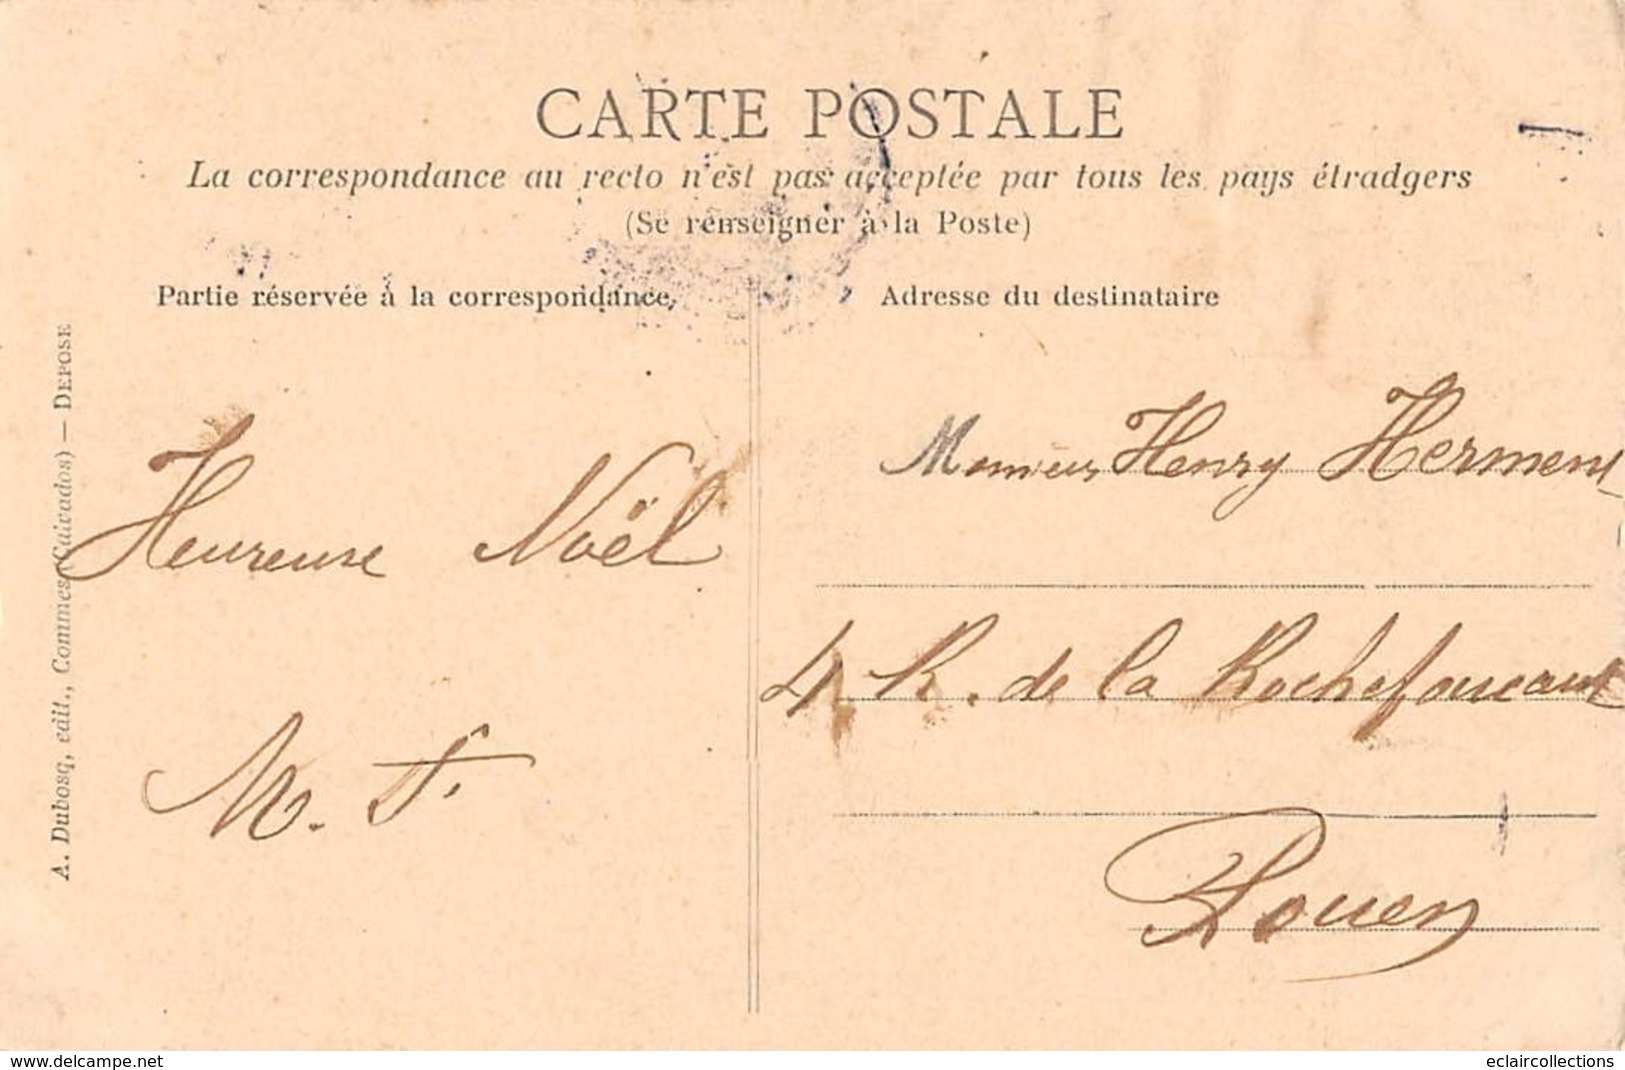 CARTE POSTALE
La correspondance au recto n'est pas acceptée par tous les pays étradgers
(Se renseigner à la Poste)
Partie réservée à la correspondance
Adresse du destinataire
A. Dubosq, édit., Commes (Calvados) — DEPOSE
Heureuse Noël
M. F.
Monsieur Henry Herment
4 R. de la Rochefoucault
Rouen
www.delcampe.net
eclaircollections